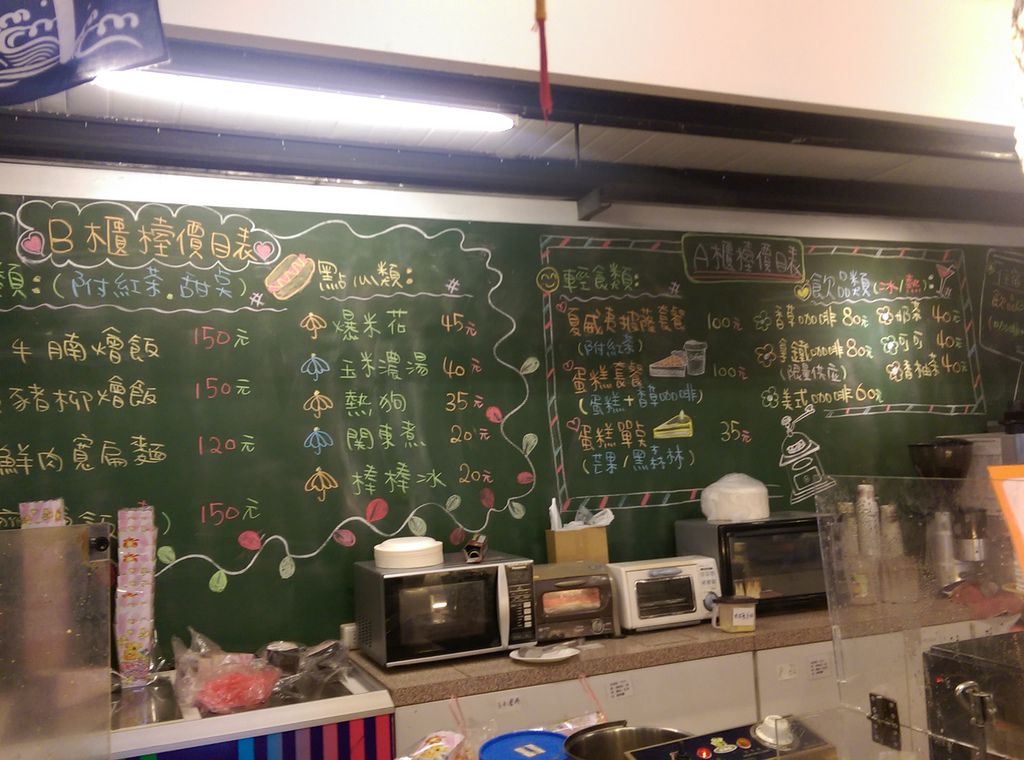 B櫃檯價目表
類:(附紅茶.甜桌)
牛腩燴飯 150元
豬柳燴飯 150元
鮮肉寬扁麵 120元
150元
點心類:
爆米花 45元
玉米濃湯 40元
熱狗 35元
関東煮 20元
棒棒冰 20元
A櫃檯價目表
輕食類:
夏威夷披薩套餐 100元
(附紅茶)
蛋糕套餐 100元
(蛋糕+香草咖啡)
蛋糕單點 35元
(芒果/黑森林)
飲品類(冰/熱):
香草咖啡 80元
拿鐵咖啡 80元
(限量供應)
美式咖啡 60元
奶茶 40元
可可 40元
香柚茶 40元